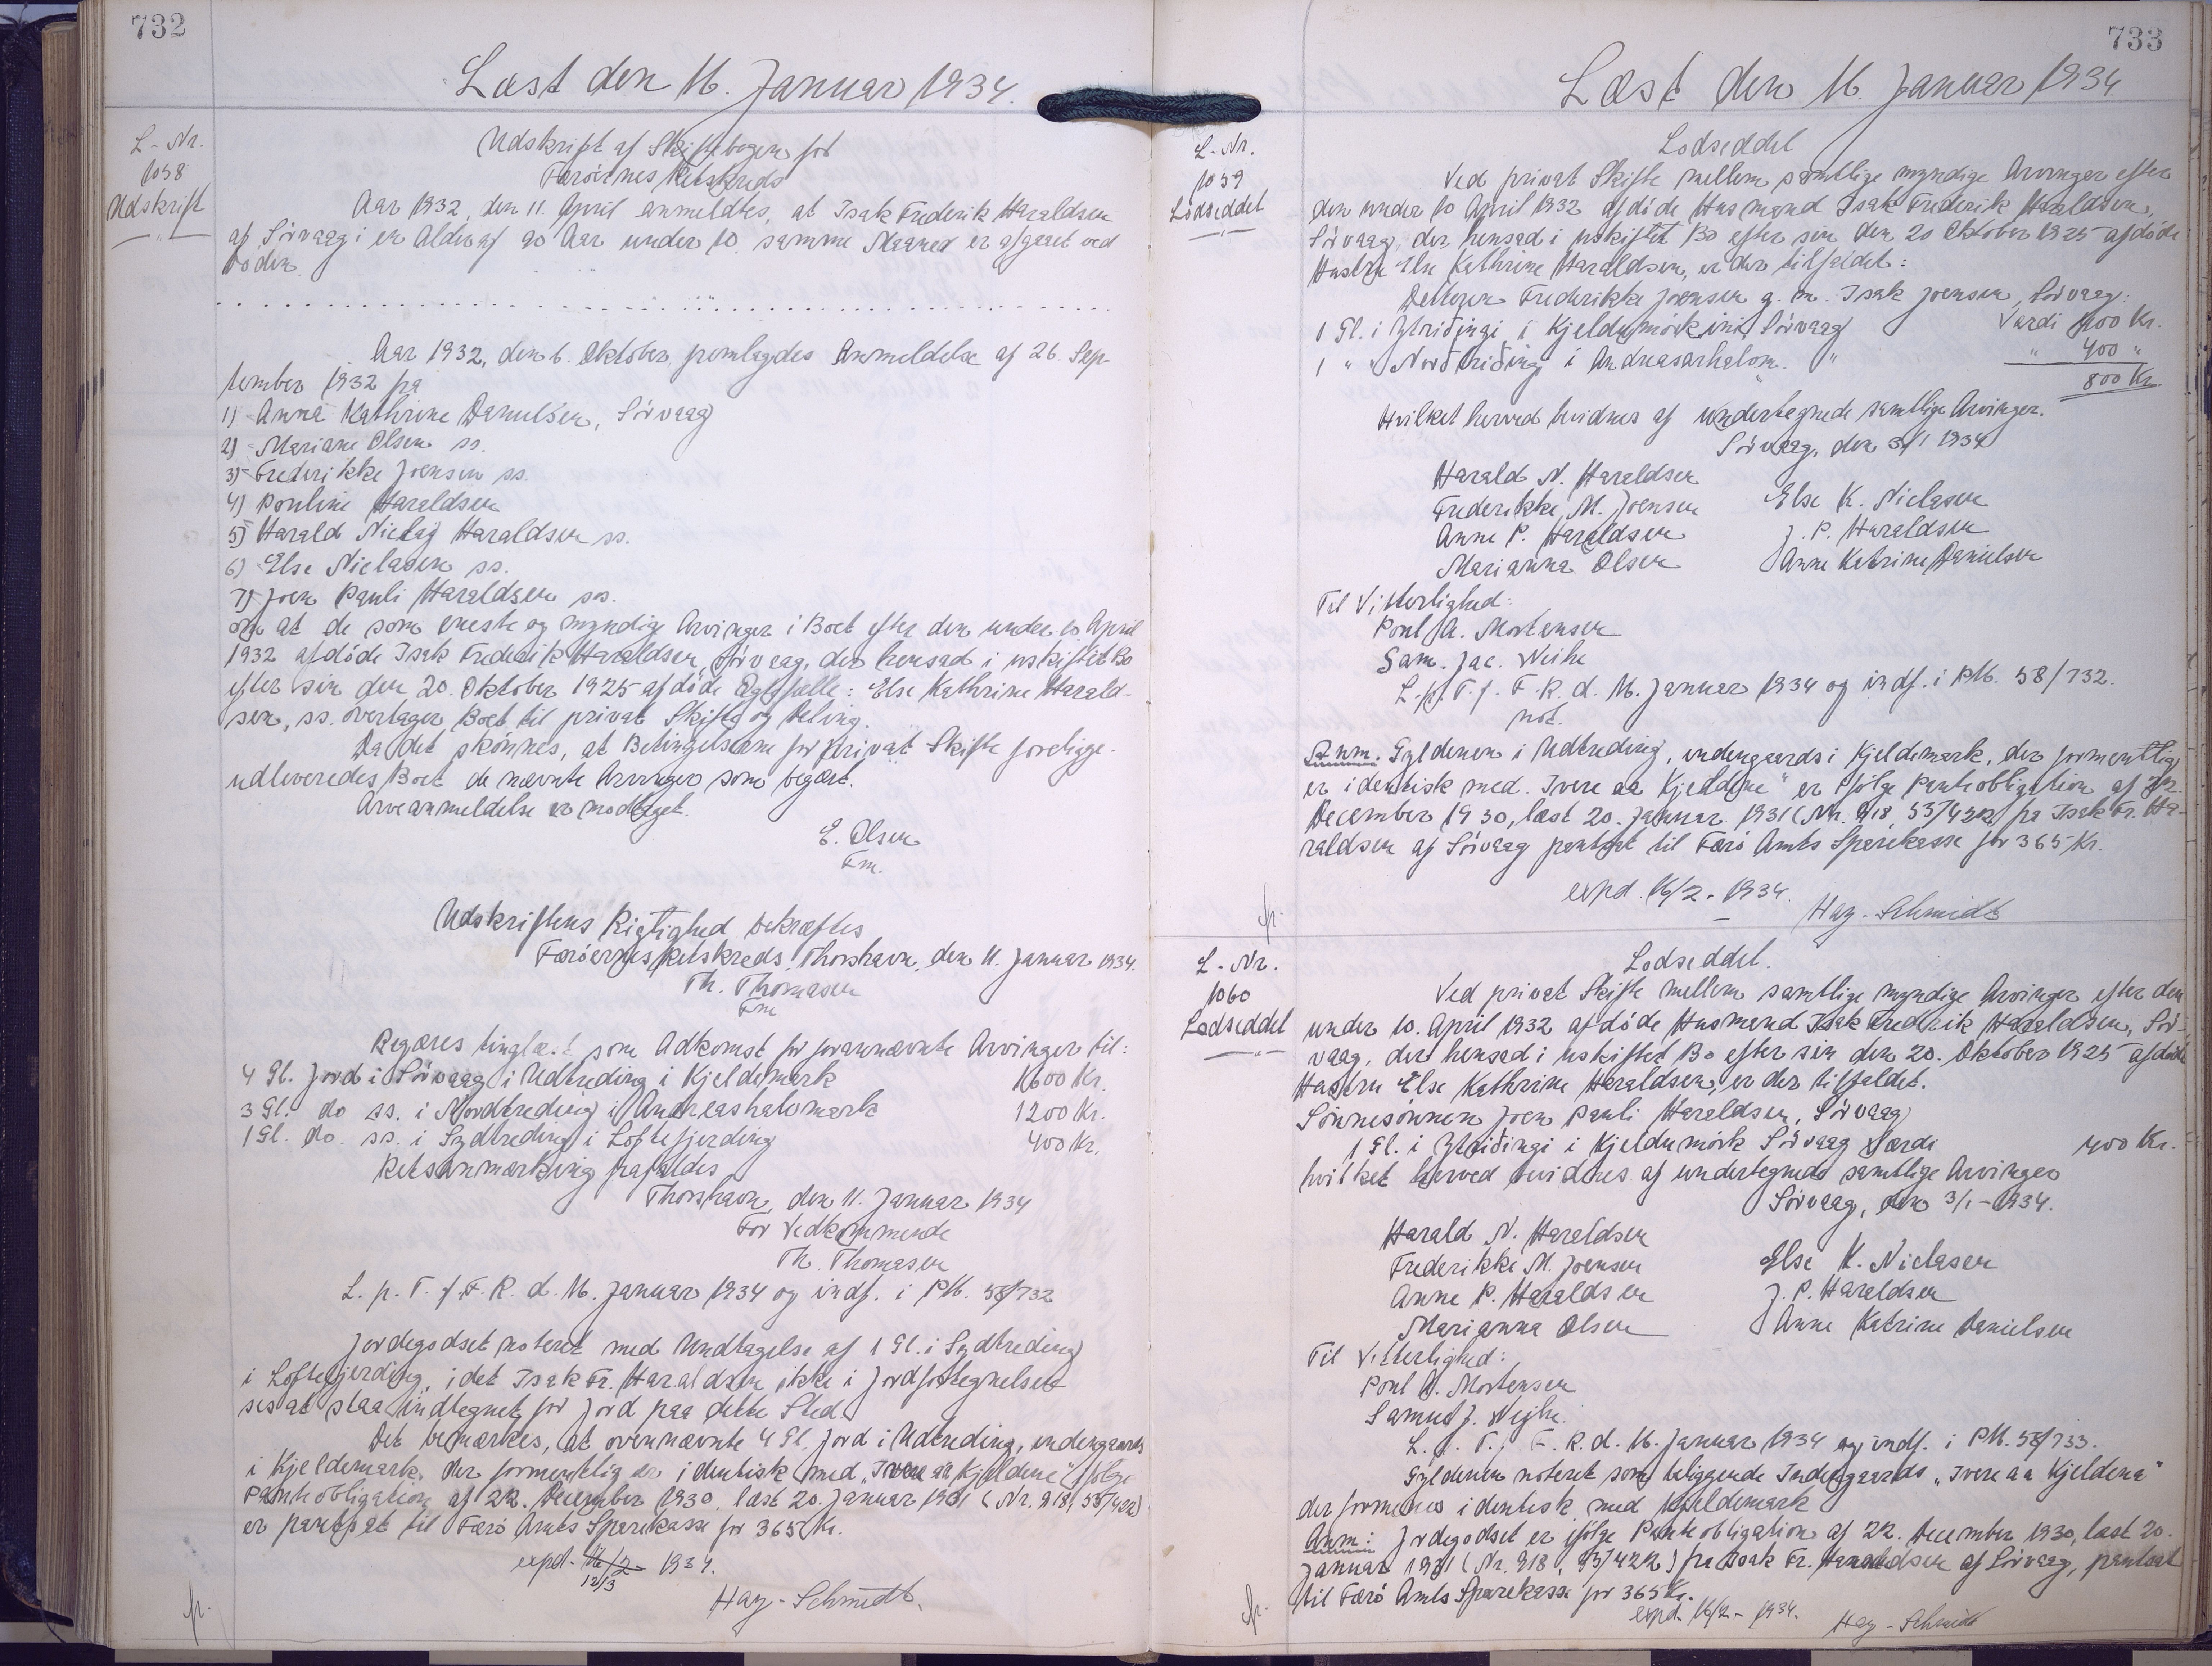 732
Læst den 16. Januar 1934.
L-Nr.
1058
Udskrift
Udskrift af Skiftebogen for
Færöernes Retskreds
Aar 1932, den 11. April anmeldtes, at Isak Frederik Haraldsen
af Sörvaag i en Alder af 90 Aar under 10. samme Maaned er afgaaet ved
Döden.
Aar 1932, den 6. Oktober fremlagdes Anmeldelse af 26. Sep-
tember 1932 fra
1) Anna Kathrine Danielsen, Sörvaag
2) Mariane Olsen ss.
3) Frederikke Joensen ss.
4) Pouline Haraldsen
5) Harald Nielaj Haraldsen ss.
6) Else Nielasen ss.
7) Joen Pauli Haraldsen ss.
om at de som eneste og myndige Arvinger i Boet efter den under 10 April
1932 afdöde Isak Frederik Haraldsen, Sörvaag, der hensad i uskiftet Bo
efter sin den 20. Oktober 1925 afdöde Ægtefælle: Else Kathrine Harald-
sen, ss. overtager Boet til privat Skifte og Deling.
Da det skönnes, at Betingelserne for privat Skifte foreligge-
udleveredes Boet de nævnte Arvinger som begært.
Arveanmeldelse er modtaget.
E. Olsen
Fm.
Udskriftens Rigtighed bekræftes
Færöernes Retskreds, Thorshavn, den 11. Januar 1934.
Th. Thomasen
Fm
Begæres tinglæst som Adkomst for forannævnte Arvinger til:
4 Gl. Jord i Sörvaag i Udtreding i Kjeldemark 1600 Kr.
3 Gl. do ss. i Nordtreding i Andreashalomark 1200 Kr.
1 Gl. do. ss. i Sydtreding i Loftefjerding 400 Kr.
Retsanmærkning frafaldes
Thorshavn, den 11. Januar 1934
For Vedkommende
Th. Thomasen
L. p. T. f. F. R. d. 16. Januar 1934 og indf. i PM. 58/732
Jordegodset noteret med Undtagelse af 1 Gl. i Sydtreding
i Loftefjerding, idet Isak Fr. Haraldsen ikke i Jordfortegnelsen
ses at staa indtegnet for Jord paa dette Sted.
Det bemærkes, at ovennævnte 4 Gl. Jord i Udtreding, indengaards
i Kjeldemark, der formentlig er identisk med "Ivere aa Kjeldene" ifölge
Panteobligation af 22. December 1930, læst 20. Januar 1931 (Nr. 918, 53/422)
er pantsat til Færö Amts Sparekasse for 365 Kr.
expd. 16/2 1934.
12/3
Hay-Schmidt.
fr.
733
Læst den 16. Januar 1934
L-Nr.
1059
Lodseddel
Lodseddel
Ved privat Skifte mellem samtlige myndige Arvinger efter
den under 10 April 1932 afdöde Husmand Isak Frederik Haraldsen,
Sörvaag, der hensad i uskiftet Bo efter sin den 20 Oktober 1925 afdöde
Hustru Else Kathrine Haraldsen, er der tilfaldet:
Datteren Frederikke Joensen g. m. Isak Joensen, Sörvaag:
1 Gl. i Ytriðingi i Kjeldumörkini Sörvaag Værdi 400 Kr.
1 " " Norðtriðingi i Andreasarhalom. " " 400 "
800 Kr.
Hvilket herved bevidnes af undertegnede samtlige Arvinger.
Sörvaag, den 3/1 1934
Harald N. Haraldsen
Frederikke M. Joensen Else K. Niclasen
Anne P. Haraldsen J. P. Haraldsen
Marianna Olsen Anne Katrine Danielsen
Til Vitterlighed:
Poul A. Mortensen
Sam. Jac. Weihe
L. p. T. f. F. R. d. 16. Januar 1934 og indf. i PM. 58/732.
not.
Anm. Gyldenen i Udtreding, indengaards i Kjeldemark, der formentlig
er identisk med "Ivere aa Kjeldene" er ifölge Panteobligation af 22.
December 1930, læst 20. Januar 1931 (Nr. 918, 53/422) fra Isak Fr. Ha-
raldsen af Sörvaag pantsat til Færö Amts Sparekasse for 365 Kr.
expd. 16/2 - 1934.
Hay-Schmidt
fr.
L-Nr.
1060
Lodseddel
Lodseddel.
Ved privat Skifte mellem samtlige myndige Arvinger efter den
under 10. April 1932 afdöde Husmand Isak Frederik Haraldsen, Sör-
vaag, der hensad i uskiftet Bo efter sin den 20. Oktober 1925 afdöde
Hustru Else Kathrine Haraldsen, er der tilfaldet.
Sönnesönnen Joen Pauli Haraldsen, Sörvaag
1 Gl. i Ytriðingi i Kjeldumörk Sörvaag Værdi 400 Kr.
hvilket herved bevidnes af undertegnede samtlige Arvinger
Sörvaag, den 3/1 - 1934.
Harald N. Haraldsen
Frederikke M. Joensen Else K. Niclasen
Anne P. Haraldsen J. P. Haraldsen
Marianna Olsen Anne Katrine Danielsen
Til Vitterlighed:
Poul A. Mortensen
Samuel J. Weihe.
L. p. T. f. F. R. d. 16. Januar 1934 og indf. i PM. 58/733.
Gyldenen noteret som beliggende Indengaards "Ivere aa Kjeldena"
der formenes identisk med Kjeldemark
Anm: Jordegodset er ifölge Panteobligation af 22. December 1930, læst 20.
Januar 1931 (Nr. 918, 53/422) fra Isak Fr. Haraldsen af Sörvaag, pantsat
til Færö Amts Sparekasse for 365 Kr.
expd. 16/2 - 1934.
Hay-Schmidt
fr.